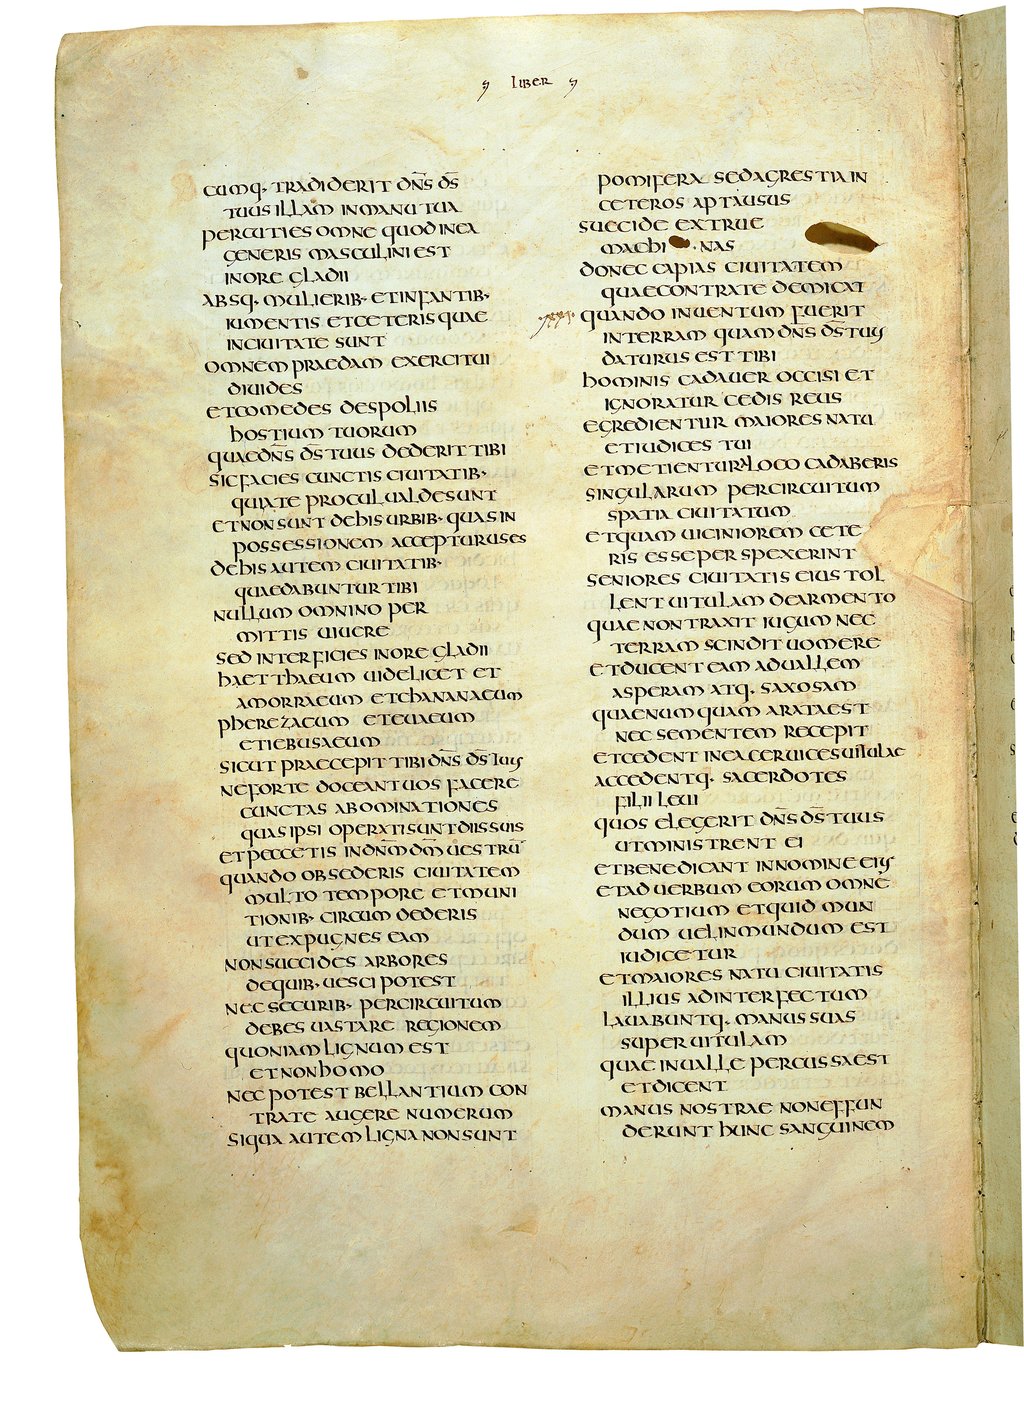 LIBER
CUMQ· TRADIDERIT DN̄S D̄S
TUUS ILLAM IN MANU TUA
PERCUTIES OMNE QUOD IN EA
GENERIS MASCULINI EST
IN ORE GLADII
ABSQ· MULIERIB· ET INFANTIB·
IUMENTIS ET CETERIS QUAE
IN CIUITATE SUNT
OMNEM PRAEDAM EXERCITUI
DIUIDES
ET COMEDES DE SPOLIIS
HOSTIUM TUORUM
QUAE DN̄S D̄S TUUS DEDERIT TIBI
SIC FACIES CUNCTIS CIUITATIB·
QUAE A TE PROCUL UALDE SUNT
ET NON SUNT DE HIS URBIB· QUAS IN
POSSESSIONEM ACCEPTURUS ES
DE HIS AUTEM CIUITATIB·
QUAE DABUNTUR TIBI
NULLUM OMNINO PER
MITTIS UIUERE
SED INTERFICIES IN ORE GLADII
HAETTHAEUM UIDELICET ET
AMORRAEUM ET CHANANAEUM
PHEREZAEUM ET EUAEUM
ET IEBUSAEUM
SICUT PRAECEPIT TIBI DN̄S D̄S TUUS
NE FORTE DOCEANT UOS FACERE
CUNCTAS ABOMINATIONES
QUAS IPSI OPERATI SUNT DIIS SUIS
ET PECCETIS IN DN̄M D̄M UESTRŪ
QUANDO OBSEDERIS CIUITATEM
MULTO TEMPORE ET MUNI
TIONIB· CIRCUMDEDERIS
UT EXPUGNES EAM
NON SUCCIDES ARBORES
DE QUIB· UESCI POTEST
NEC SECURIB· PER CIRCUITUM
DEBES UASTARE REGIONEM
QUONIAM LIGNUM EST
ET NON HOMO
NEC POTEST BELLANTIUM CON
TRA TE AUGERE NUMERUM
SI QUA AUTEM LIGNA NON SUNT
POMIFERA SED AGRESTIA IN
CETEROS APTA USUS
SUCCIDE EXTRUE
MACHI·NAS
DONEC CAPIAS CIUITATEM
QUAE CONTRA TE DEMICAT
QUANDO INUENTUM FUERIT
IN TERRAM QUAM DN̄S D̄S TUUS
DATURUS EST TIBI
HOMINIS CADAUER OCCISI ET
IGNORATUR CEDIS REUS
EGREDIENTUR MAIORES NATU
ET IUDICES TUI
ET METIENTUR A LOCO CADABERIS
SINGULARUM PER CIRCUITUM
SPATIA CIUITATUM
ET QUAM UICINIOREM CETE
RIS ESSE PERSPEXERINT
SENIORES CIUITATIS EIUS TOL
LENT UITULAM DE ARMENTO
QUAE NON TRAXIT IUGUM NEC
TERRAM SCINDIT UOMERE
ET DUCENT EAM AD UALLEM
ASPERAM ATQ· SAXOSAM
QUAE NUMQUAM ARATA EST
NEC SEMENTEM RECEPIT
ET CEDENT IN EA CERUICES UITULAE
ACCEDENTQ· SACERDOTES
FILII LEUI
QUOS ELEGERIT DN̄S D̄S TUUS
UT MINISTRENT EI
ET BENEDICANT IN NOMINE EIUS
ET AD UERBUM EORUM OMNE
NEGOTIUM ET QUID MUN
DUM UEL INMUNDUM EST
IUDICETUR
ET MAIORES NATU CIUITATIS
ILLIUS AD INTERFECTUM
LAUABUNTQ· MANUS SUAS
SUPER UITULAM
QUAE IN UALLE PERCUSSA EST
ET DICENT
MANUS NOSTRAE NON EFFUN
DERUNT HUNC SANGUINEM